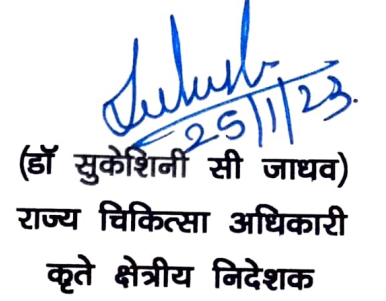 25/1/23.
(डॉ सुकेशिनी सी जाधव)
राज्य चिकित्सा अधिकारी
कृते क्षेत्रीय निदेशक